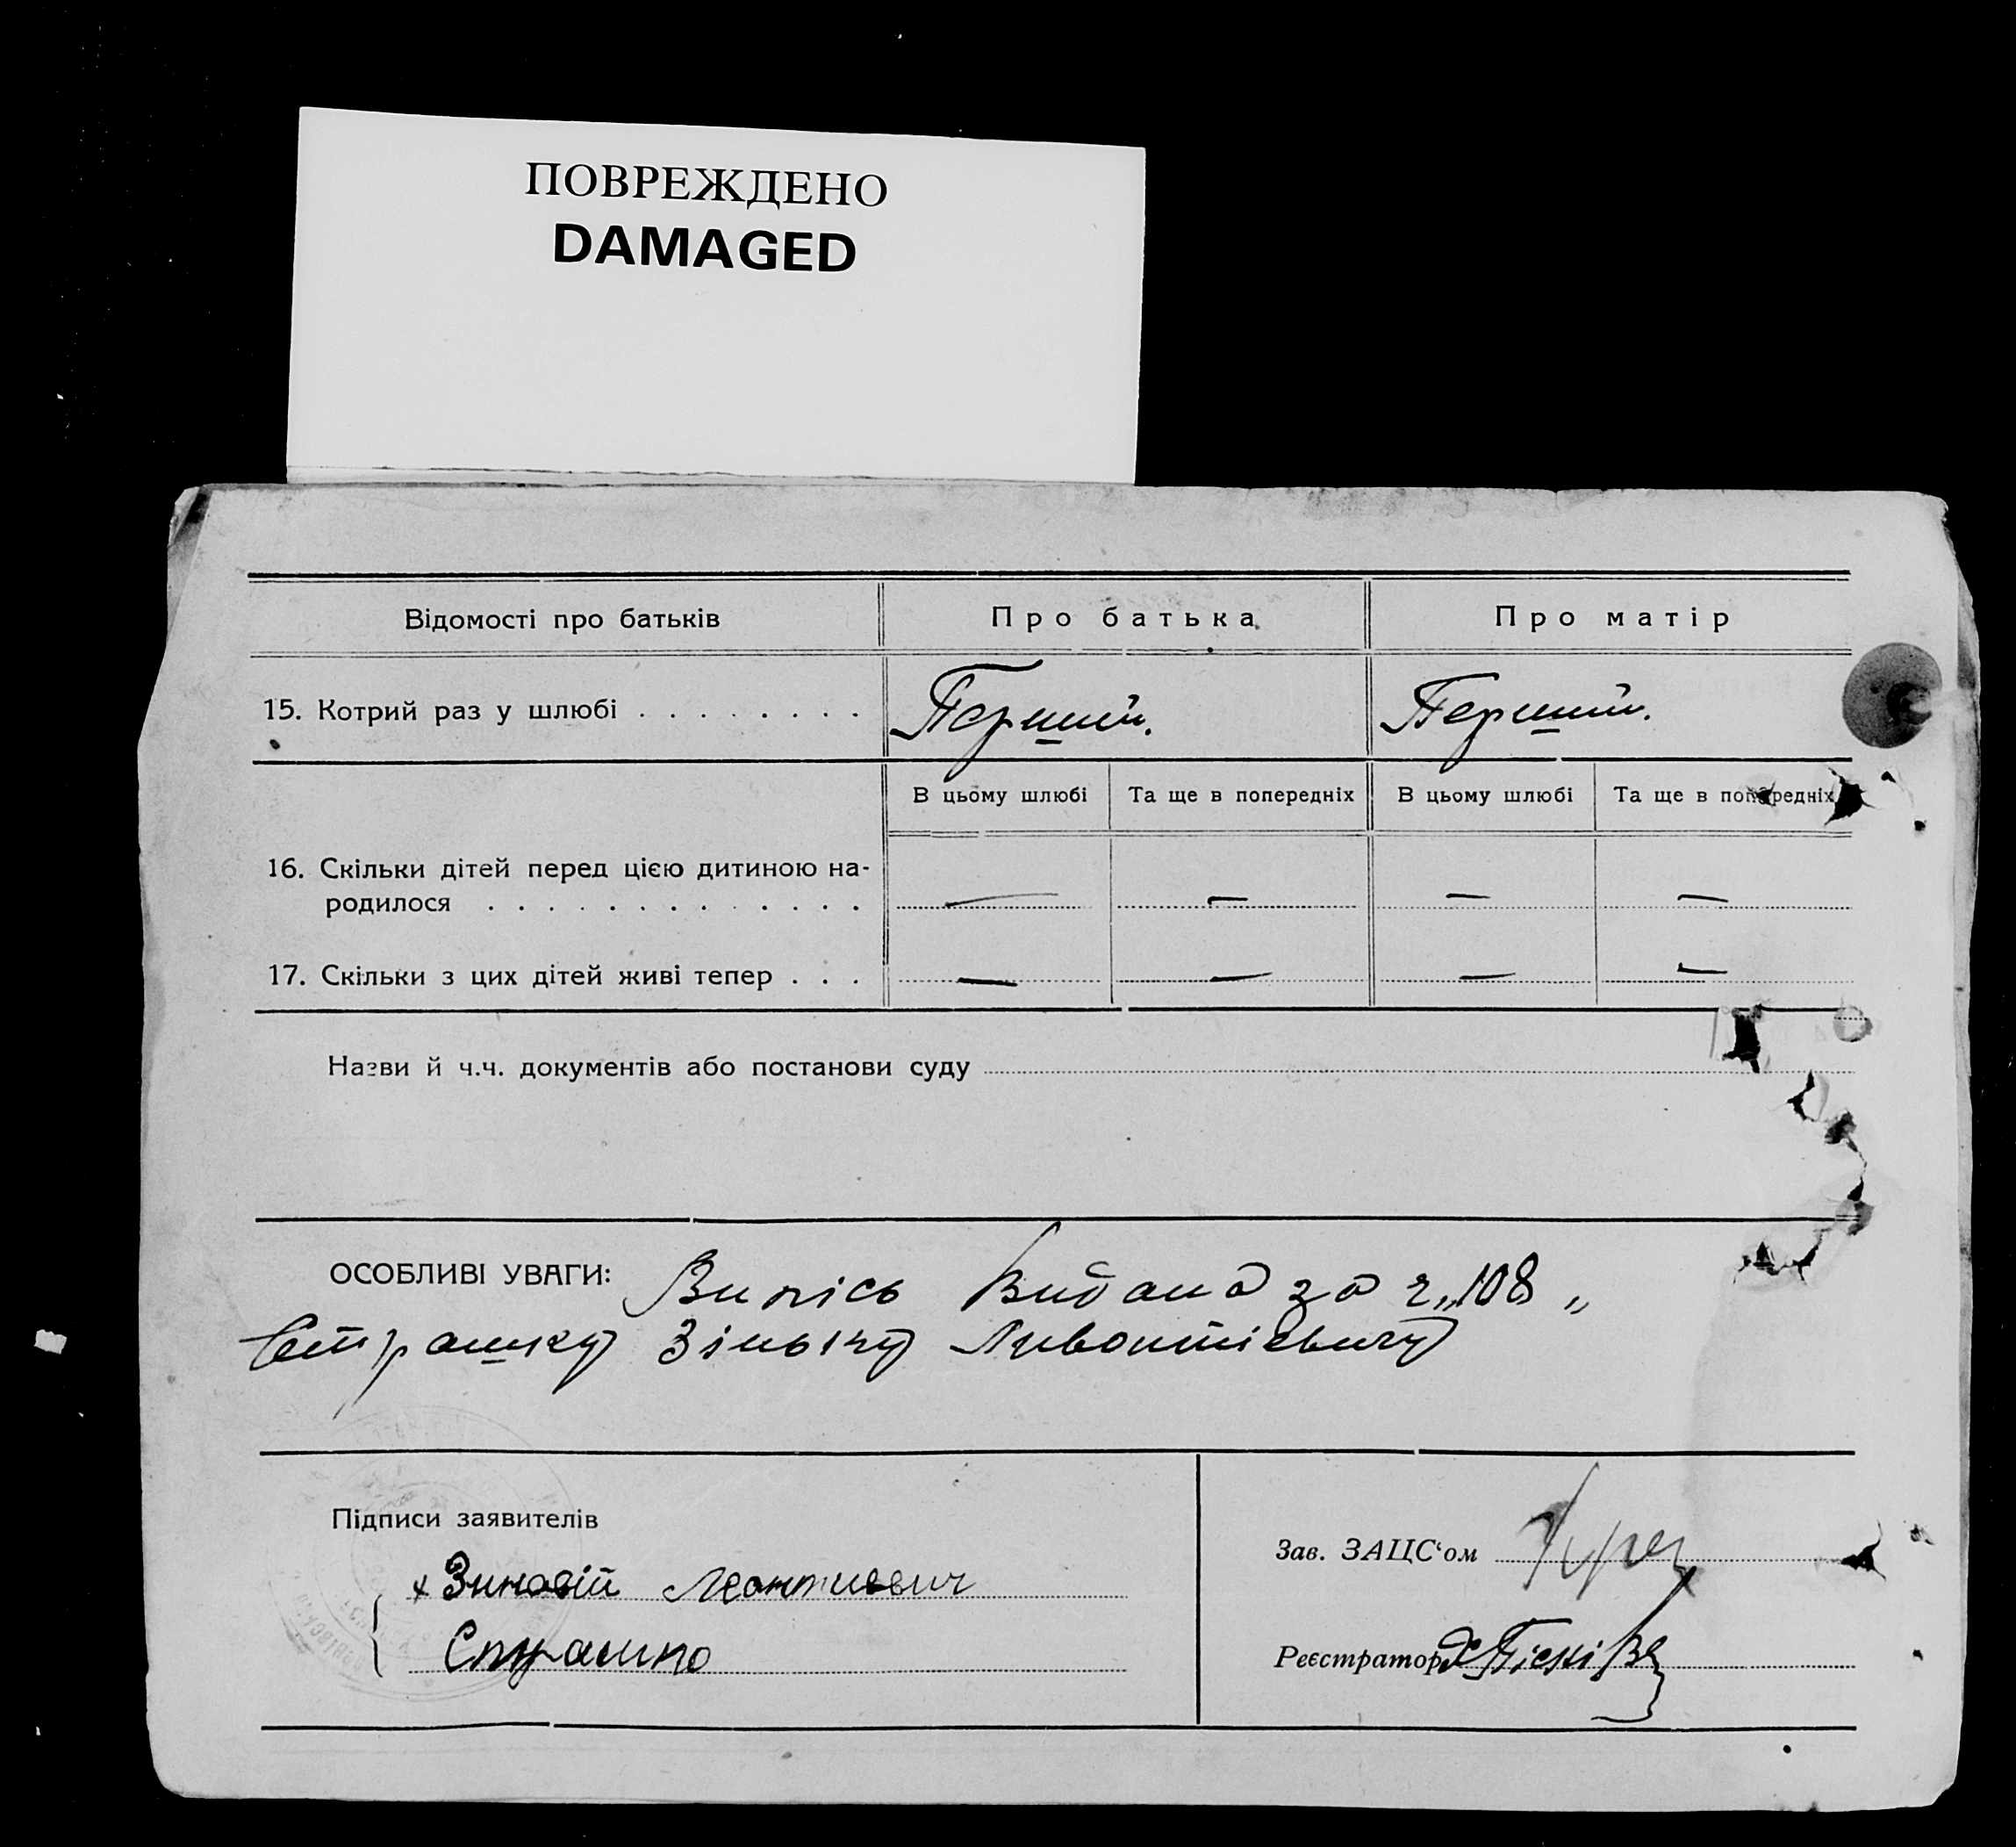 ПОВРЕЖДЕНО
DAMAGED
Відомості про батьків Про батька Про матір
15. Котрий раз у шлюбі . . . . . . . . Перший. Перший.
В цьому шлюбі Та ще в попередніх В цьому шлюбі Та ще в попередніх
16. Скільки дітей перед цією дитиною на-
родилося . . . . . . . . . . . . . — — — —
17. Скільки з цих дітей живі тепер . . . — — — —
Назви й ч.ч. документів або постанови суду
ОСОБЛИВІ УВАГИ: Випісь видана за ч. „108„
Страшку Зіньку Ливонтієвичу
Підписи заявителів
х Зиновій Леонтиевич
Страшко
Зав. ЗАЦС‘ом
Реєстратор